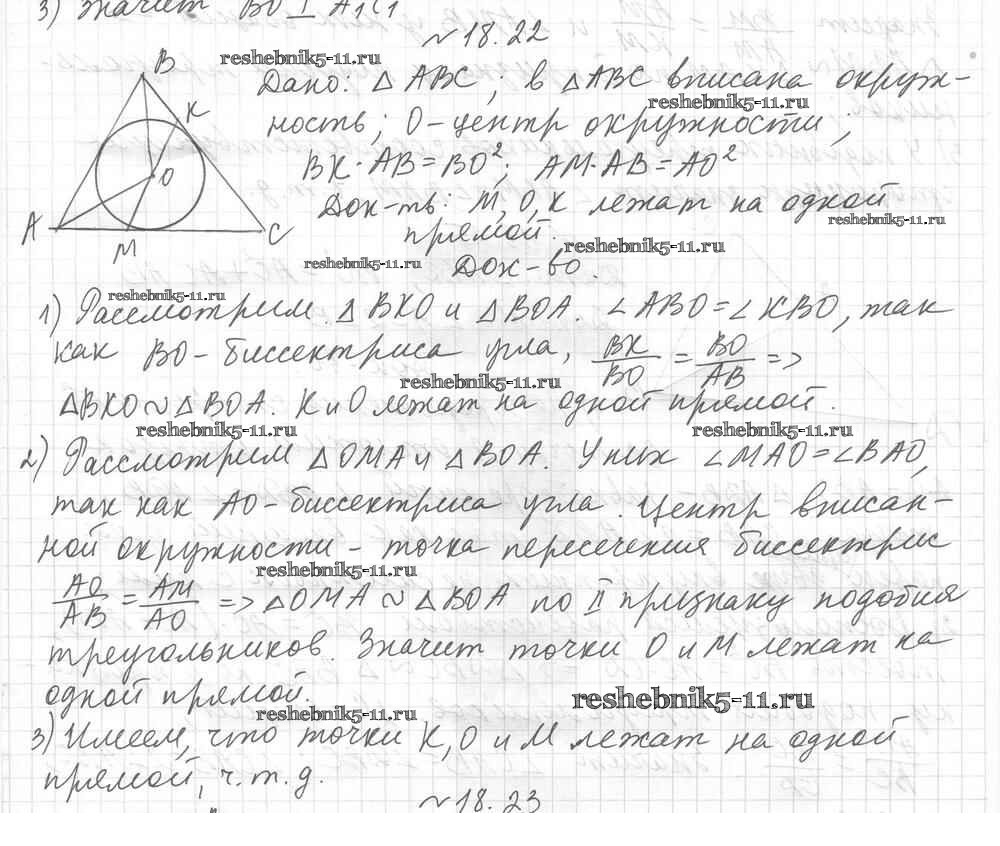 3) Значит BO ⊥ A₁C₁
№18.22
reshebnik5-11.ru
B
K
O
A
M
C
Дано: △ABC; в △ABC вписана окруж-
reshebnik5-11.ru
ность; O-центр окружности;
BK·AB=BO²; AM·AB=AO²
Док-ть: M, O, K лежат на одной
reshebnik5-11.ru
прямой.
reshebnik5-11.ru
reshebnik5-11.ru
Док-во.
reshebnik5-11.ru
1) Рассмотрим △BKO и △BOA. ∠ABO=∠KBO, так
как BO-биссектриса угла, BK/BO = BO/AB =>
reshebnik5-11.ru
△BKO~△BOA. K и O лежат на одной прямой.
reshebnik5-11.ru
reshebnik5-11.ru
2) Рассмотрим △OMA и △BOA. У них ∠MAO=∠BAO,
так как AO-биссектриса угла. Центр вписан-
ной окружности - точка пересечения биссектрис
reshebnik5-11.ru
AO/AB = AM/AO => △OMA ~ △BOA по II признаку подобия
треугольников. Значит точки O и M лежат на
одной прямой.
reshebnik5-11.ru
reshebnik5-11.ru
3) Имеем, что точки K, O и M лежат на одной
прямой, ч.т.д.
№18.23